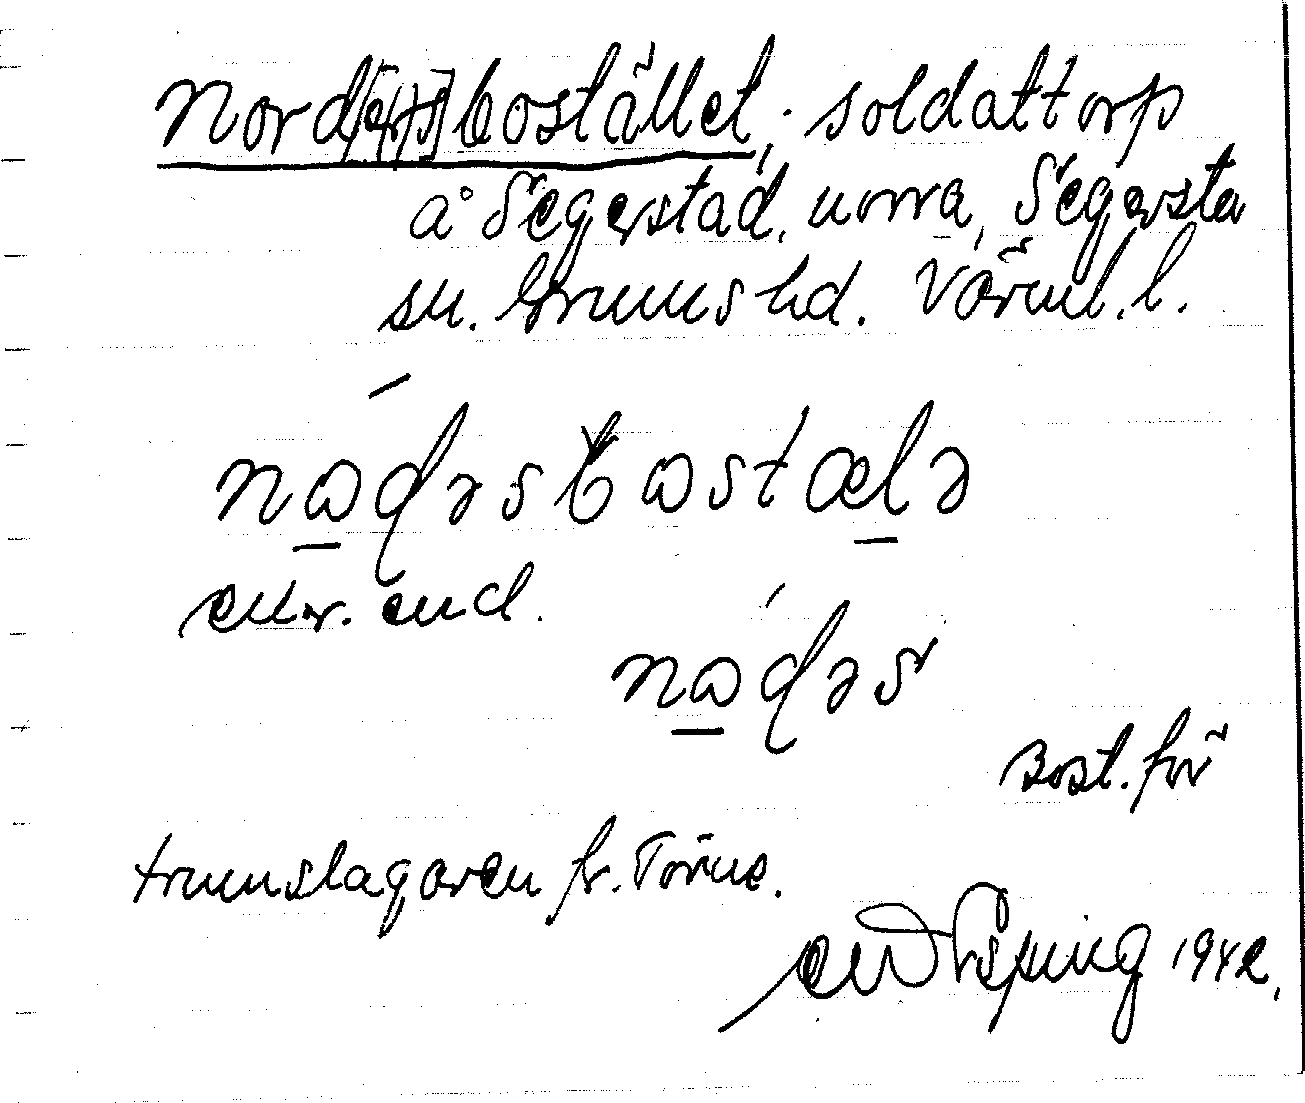 Nord[er]sbostället, soldattorp
å Segerstad, norra, Segersta
sn. Grums hd. Värml. l.
nɷdəsbɷstælə
ellr. end.
nɷdəs
Bost. för
trumslagaren fr. Törne.
1942.